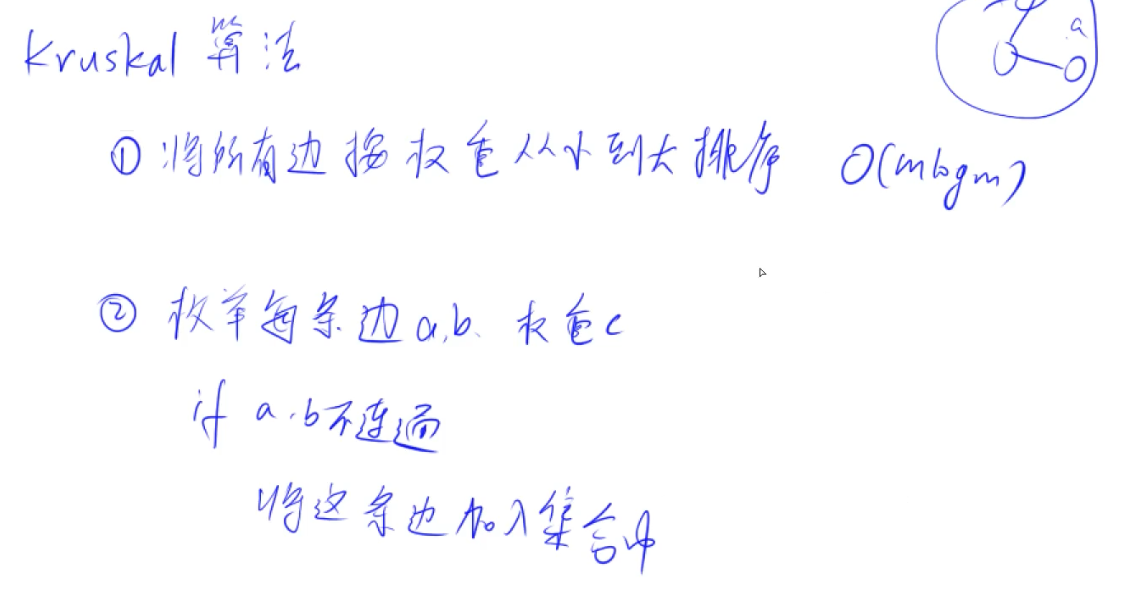 Kruskal 算法
a
① 将所有边按权重从小到大排序 O(mlogm)
② 枚举每条边a,b、权重c
if a.b不连通
将这条边加入集合中